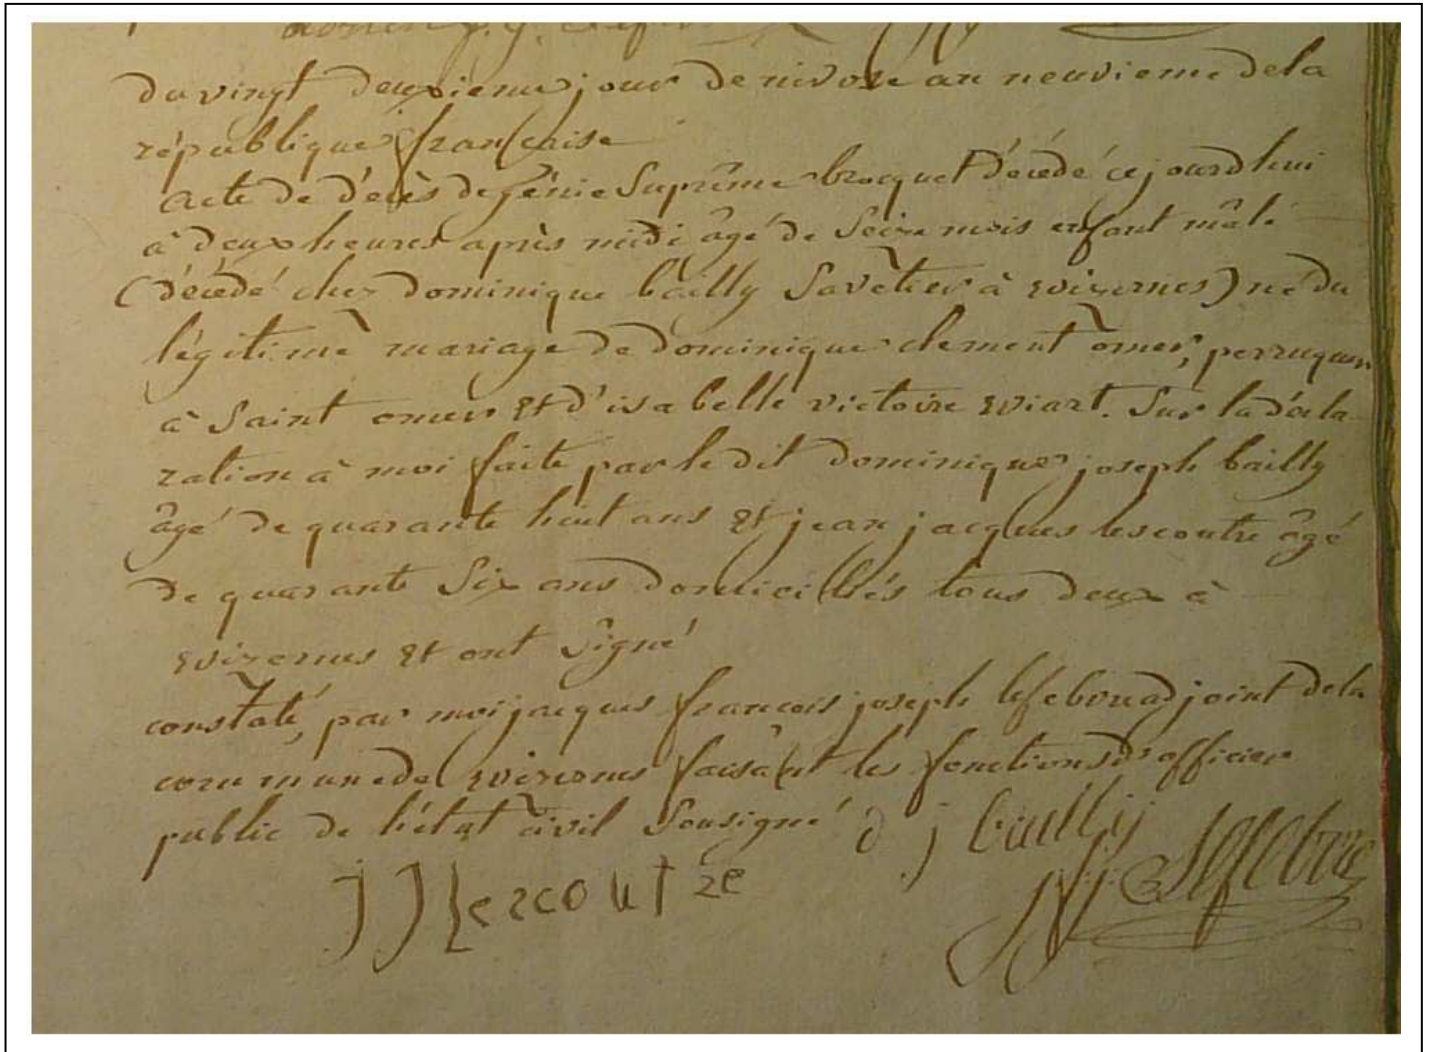 du vingt deuxieme jour de nivose an neuvieme dela
république française
acte de décès de Génie Suprême broquet décédé cejourdhui
à deux heures après midi âgé de Seize mois enfant mâle
(décédé chez dominique bailly Savetier à wizernes) né du
légitime mariage de dominique clement omer, perruquier
à Saint omer et d'isabelle victoire wiart. Sur la décla-
ration à moi faite par le dit dominique joseph bailly
âgé de quarante huit ans et jean jacques lescoutre âgé
de quarante Six ans domiciliés tous deux à
wizernes et ont Signé
constaté, par moi jacques francois joseph lefebvre adjoint dela
commune de wizernes faisant les fonctions d'officier
public de l'état civil Sousigné d j bailly
j j Lescoutre Lefebvre